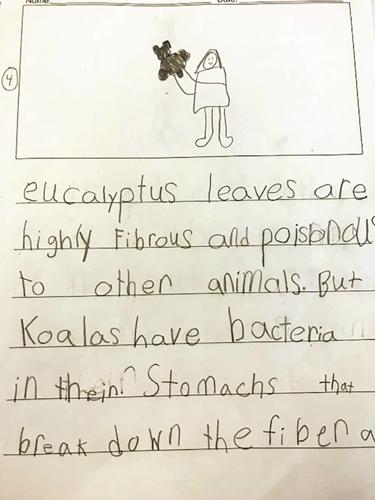 Name Date:
4
eucalyptus leaves are
highly Fibrous and poisonous
to other animals. But
Koalas have bacteria
in their Stomachs that
break down the fiber a